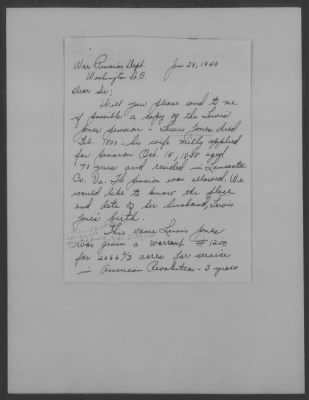 War Pension Dept.   Jan 28, 1940
Washington D.C.
Dear Sir:
Will you please send to me
if possible a copy of the Lewis
Jones pension - Lewis Jones died
Feb. 1800 - his wife Milly applied
for pension Oct. 18, aged
70 years and resided in Lancaster
Co. Va. The pension was allowed. We
would like to know the place
and date of her husband, Lewis
Jones' birth.
This same Lewis Jones
was given a warrant #
for 2666 2/3 acres for service
in American Revolution - 3 years